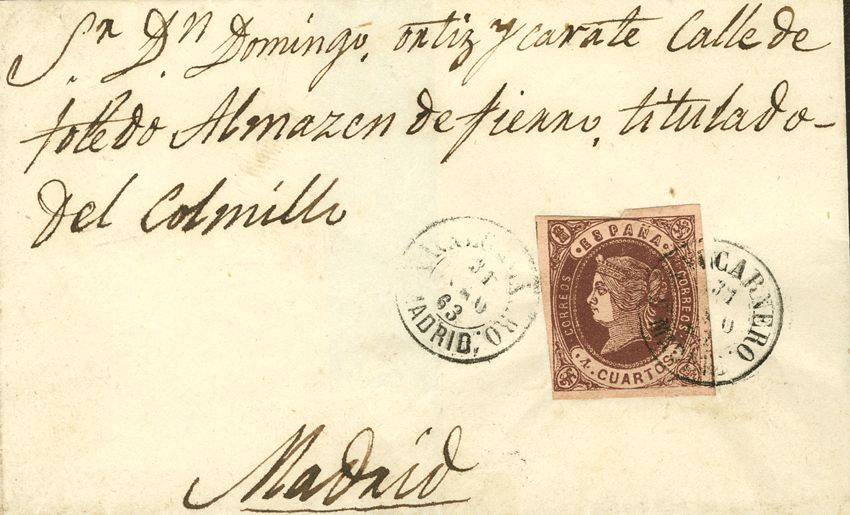 Sr. Dn. Domingo, ortiz y carate Calle de
toledo Almazen de fierro, titulado
del Colmillo
ESPAÑA
CORREOS
CORREOS
4 CUARTOS
31
63
MADRID.
CARNERO
31
Madrid